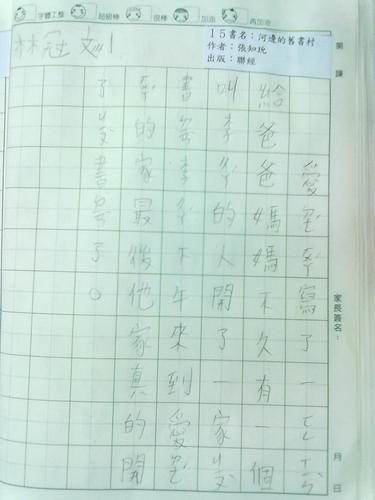 字體工整 超級棒 很棒 加油 再加油
15書名：河邊的舊書村
作者：張知玩
出版：聯經
第 課
家長簽名：
月 日
林冠
愛里寫了一
給爸爸媽媽不久有一個
叫李的人開了一家
書李下午來到愛里
的家最後他家真的開
了書了。